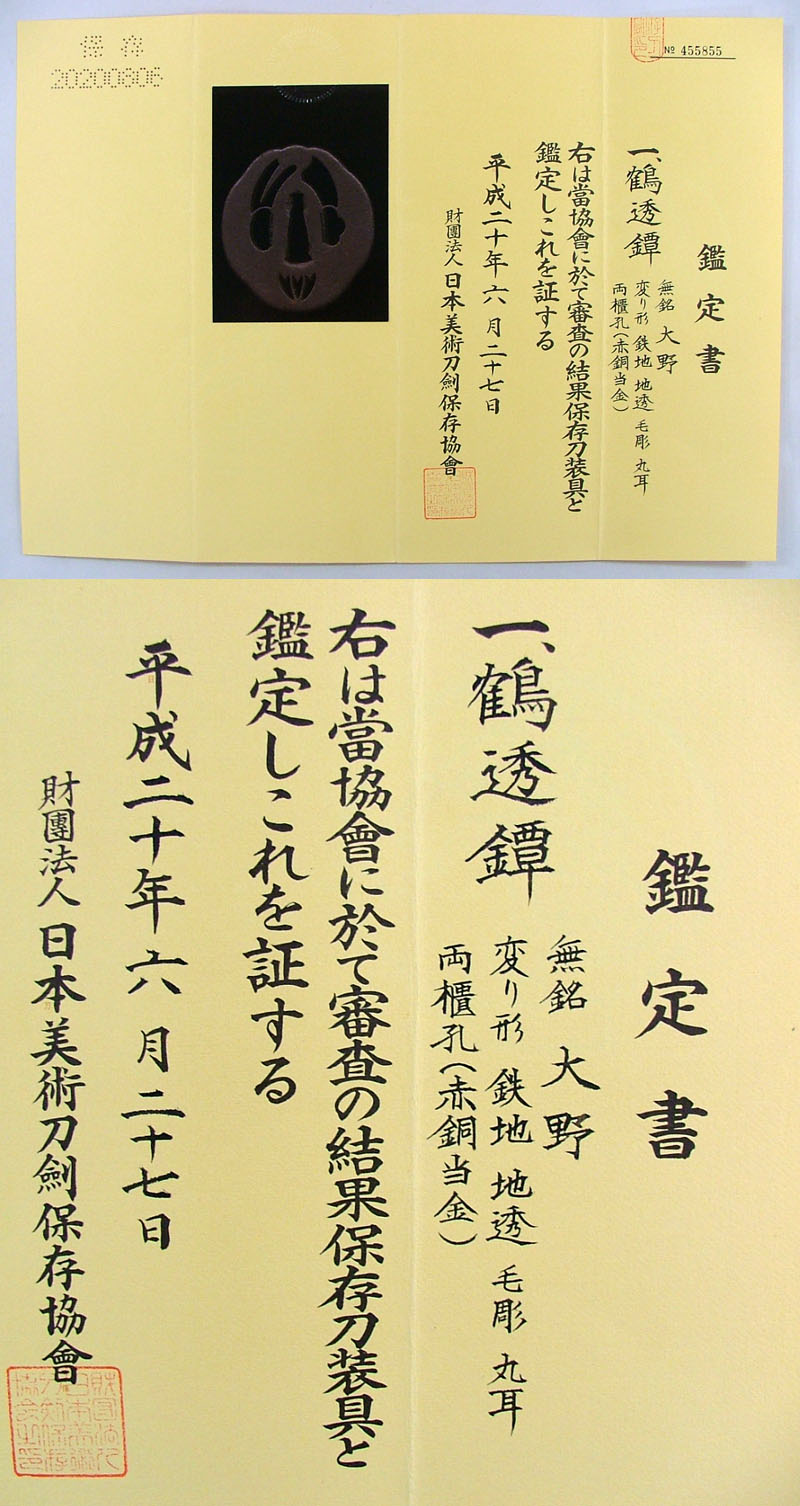 保存
20200606
№ 455855
鑑定書
一、鶴透鐔
無銘 大野
変り形 鉄地 地透 毛彫 丸耳
両櫃孔(赤銅当金)
右は當協會に於て審査の結果保存刀装具と
鑑定しこれを証する
平成二十年六月二十七日
財團法人日本美術刀劍保存協會
鑑定書
一、鶴透鐔
無銘 大野
変り形 鉄地 地透 毛彫 丸耳
両櫃孔(赤銅当金)
右は當協會に於て審査の結果保存刀装具と
鑑定しこれを証する
平成二十年六月二十七日
財團法人日本美術刀劍保存協會